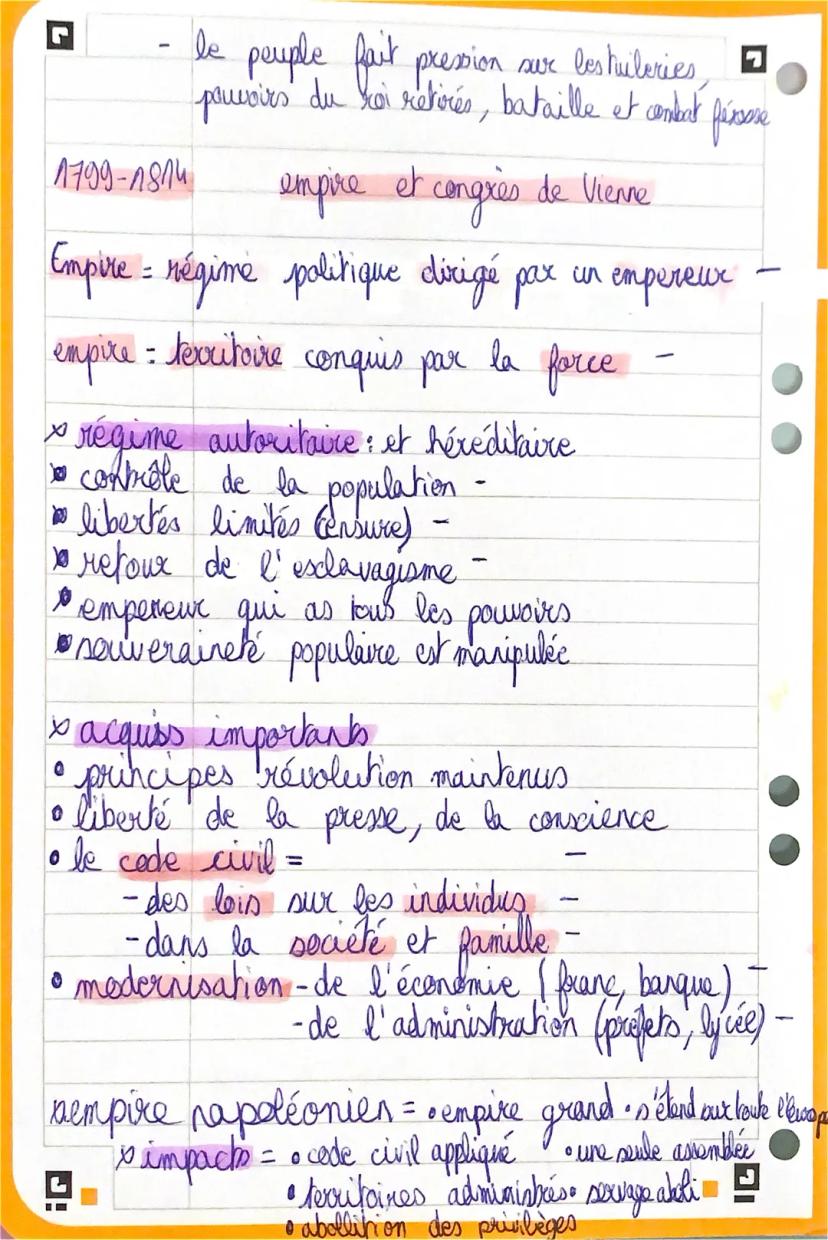 - le peuple fait pression sur les tuileries,
pouvoirs du roi retirés, bataille et combat
1799-1814 empire et congrès de Vienne
Empire = régime politique dirigé par un empereur -
empire = territoire conquis par la force -
x régime autoritaire : et héréditaire
• contrôle de la population -
• libertés limités (censure) -
• retour de l'esclavagisme -
• empereur qui as tous les pouvoirs
• souveraineté populaire est manipulée
x acquiss importants
• principes révolution maintenus
• liberté de la presse, de la conscience
• le code civil = -
- des lois sur les individus -
- dans la société et famille -
• modernisation - de l'économie (franc, banque) -
- de l'administration (préfets, lycée) -
x empire napoléonien = • empire grand • s'étend sur toute l'europ
x impacts = • code civil appliqué • une seule assemblée
• territoires administrés • servage aboli
• abollition des privilèges